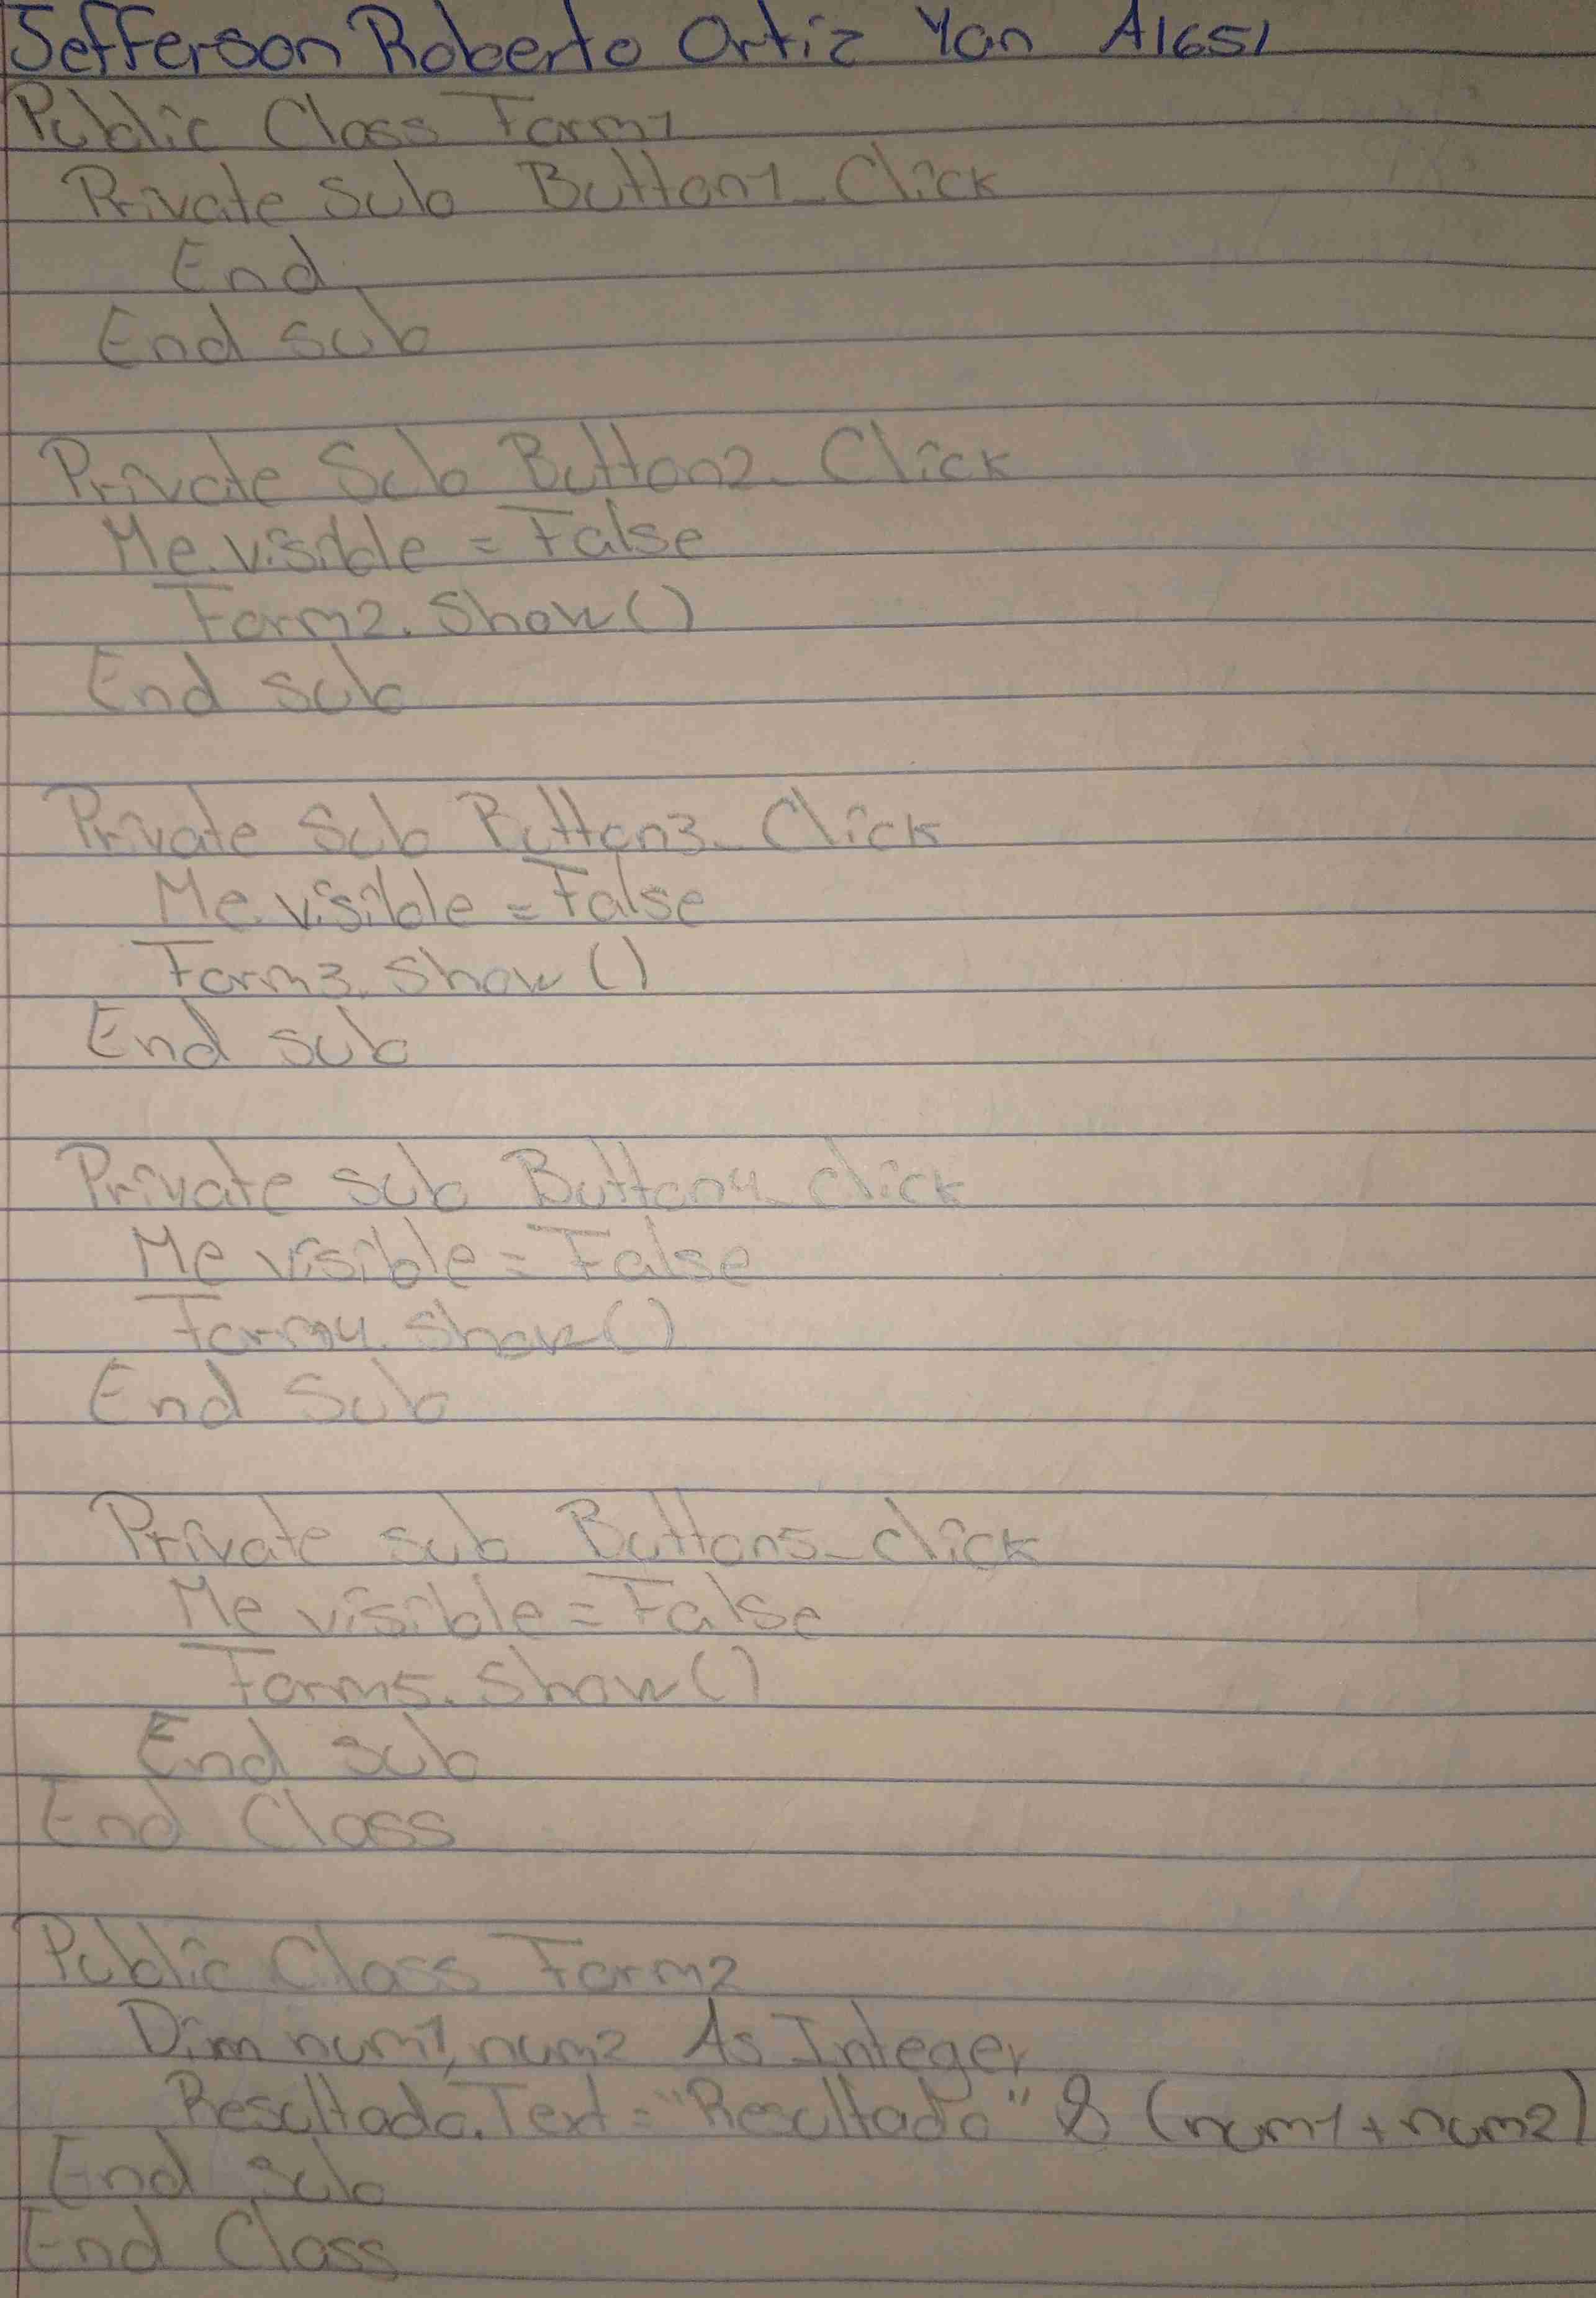 Jefferson Roberto Ortiz Yan A1651
Public Class Form1
Private Sub Button1_Click
End
End sub
Private Sub Button2_Click
Me.visible = False
Form2.Show()
End sub
Private Sub Button3_Click
Me.visible = False
Form3.Show()
End sub
Private sub Button4_click
Me visible = False
Form4.Show()
End Sub
Private sub Button5_click
Me visible = False
Form5.Show()
End sub
End Class
Public Class Form2
Dim num1, num2 As Integer
Resultado.Text = "Resultado" & (num1 + num2)
End sub
End Class